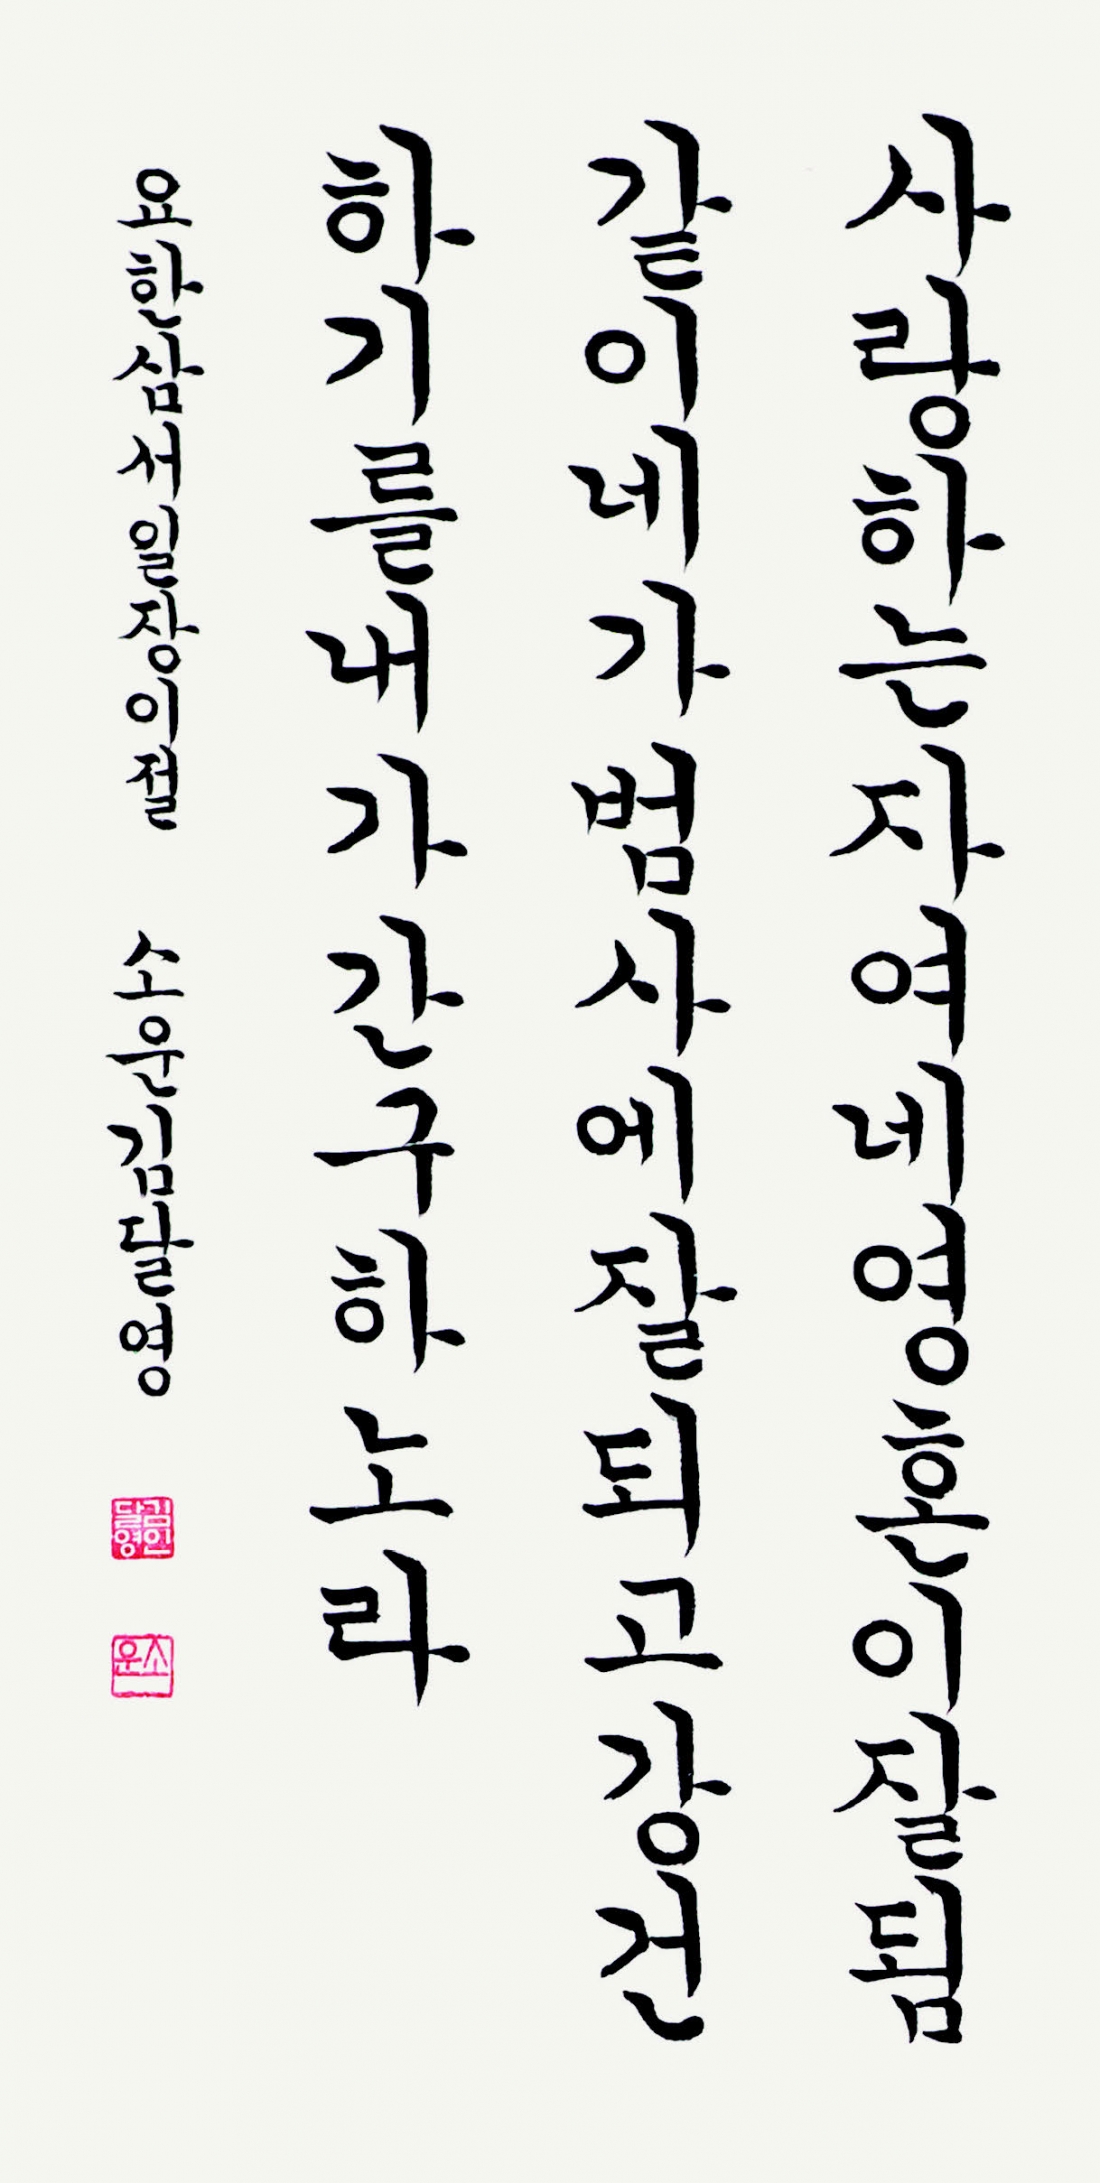 사랑하는자여네영혼이잘됨
같이네가범사에잘되고강건
하기를내가간구하노라
요한삼서일장이절 소운김달영
김인달영
소운